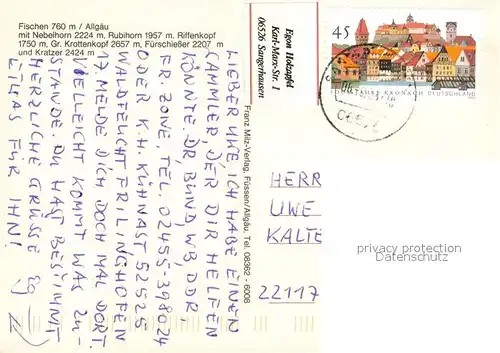 Fischen 760 m / Allgäu
mit Nebelhorn 2224 m, Rubihorn 1957 m, Riffenkopf
1750 m, Gr. Krottenkopf 2657 m, Fürschießer 2207 m
und Kratzer 2424 m
LIEBER UWE ICH HABE EINEN
SAMMLER, DER DIR HELFEN
KÖNNTE. DR, BUND, WB, DDR,
FR. ZONE, TEL. 02455-398024
ODER K.H. KÜHNAST 52525
WALDFEUCHT FRILINGHOFEN
17. MELDE DICH DOCH MAL DORT.
VIELLEICHT KOMMT WAS ZU-
STANDE. DU HAST BESTIMMT
ETWAS FÜR IHN!
HERZLICHE GRÜSSE
Franz Milz-Verlag, Füssen/Allgäu, Tel. 08362 - 6008
Egon Holzapfel
Karl-Marx-Str. 1
06526 Sangerhausen
45
JAHRE KRONACH DEUTSCHLAND
HERR
UWE
KALTE
22117
privacy protection